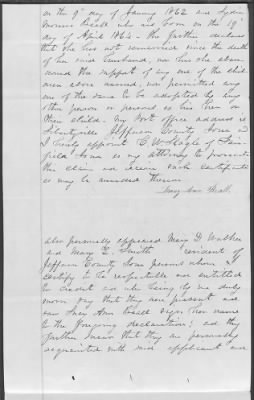 on the 9" day of January 1862 and Lydia
who was born on the 19"
day of April 1864. She further declares
that she has not remarried since the death
of her said husband, nor has she aban-
doned the support of any one of the child-
ren above named, nor permitted any
one of the same to be adopted by any
other person or persons as his her or
their child. My Post office address is
Jefferson County Iowa and
I hereby appoint C W Slagle of Fair-
field Iowa as my attorney to prosecute
the claim and receive such certificate
as may be awarded therein
Mary Ann
also personally appeared Mary D. Walker
and Mary E. Smith resident of
Jefferson County Iowa persons whom I
certify to be respectable and entitled
to credit and who being by me duly
sworn say that they were present and
saw Mary Ann sign her name
to the foregoing declaration; and they
further swear that they are personally
acquainted with said applicant and